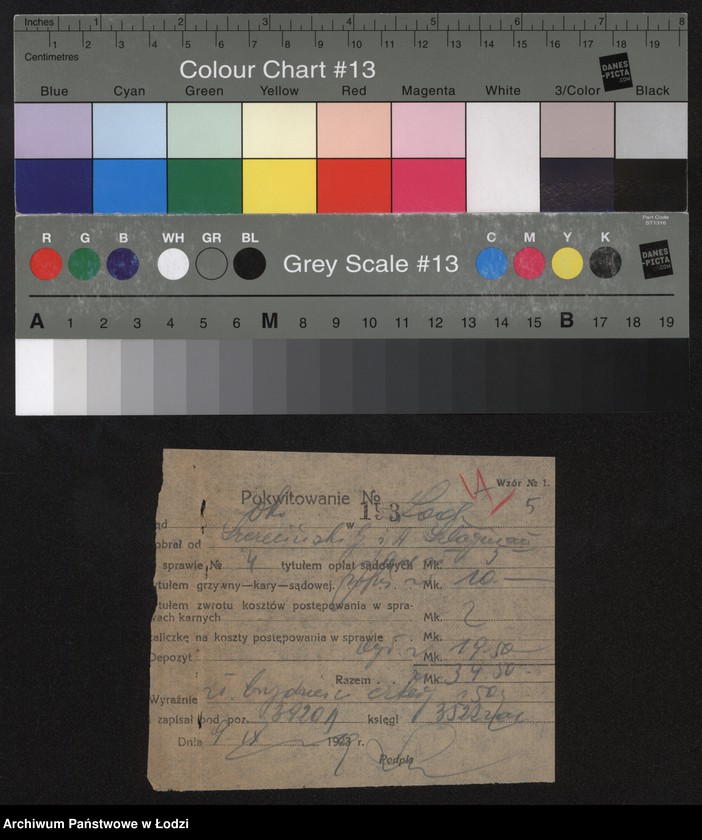 Inches 1 2 3 4 5 6 7 8
1 2 3 4 5 6 7 8 9 10 11 12 13 14 15 16 17 18 19
Centimetres
Colour Chart #13
DANES-PICTA.COM
Blue Cyan Green Yellow Red Magenta White 3/Color Black
Part Code
ST1316
R G B WH GR BL Grey Scale #13 C M Y K
DANES-PICTA.COM
A 1 2 3 4 5 6 M 8 9 10 11 12 13 14 15 B 17 18 19
Wzór № 1.
5
Pokwitowanie №
153
ąd w
obrał od
sprawie № 4 tytułem opłat sądowych Mk. 3
tytułem grzywny—kary—sądowej. Mk. 10.—
tytułem zwrotu kosztów postępowania w spra-
wach karnych Mk. 2
zaliczkę na koszty postępowania w sprawie Mk.
Depozyt Mk. 19.50
Razem . . Mk. 34 50
Wyraźnie zł. trzydzieści cztery 50
zapisał pod poz. księgi
Dnia 1923 r.
Podpis
Archiwum Państwowe w Łodzi